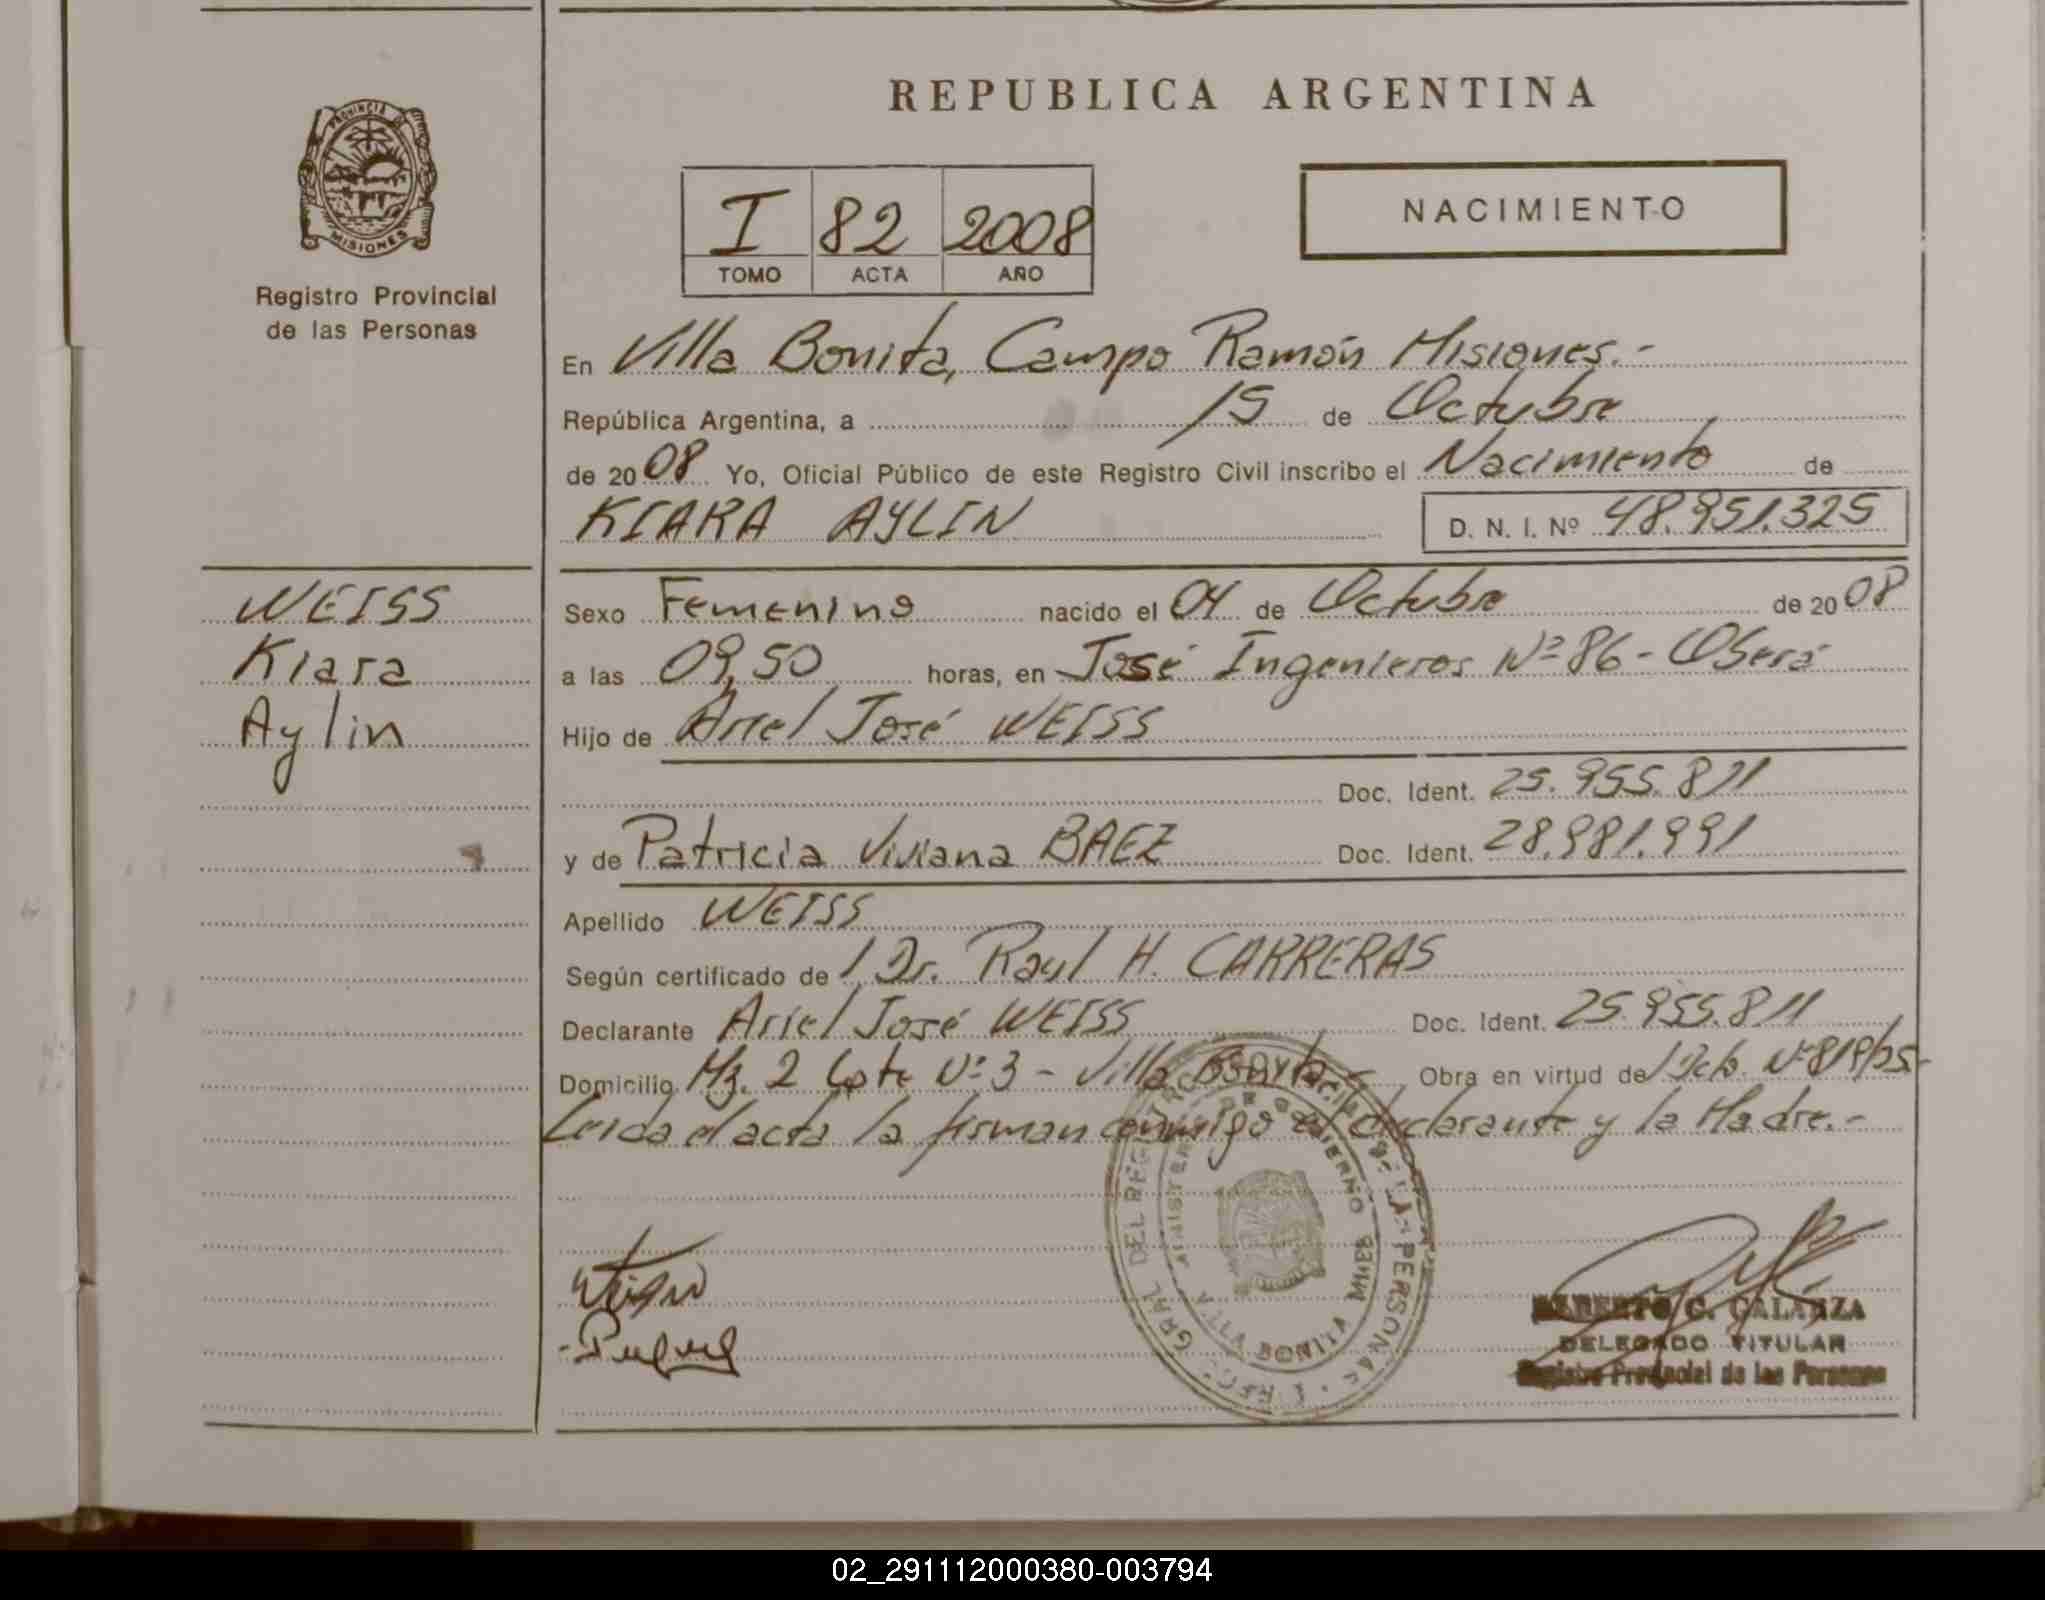 REPUBLICA ARGENTINA
PROVINCIA DE
MISIONES
Registro Provincial
de las Personas
I 82 2008
TOMO ACTA AÑO
NACIMIENTO
En Villa Bonita, Campo Ramón Misiones.-
República Argentina, a 15 de Octubre
de 2008 Yo, Oficial Público de este Registro Civil inscribo el Nacimiento de
KIARA AYLIN D. N. I. Nº 48.951.325
WEISS
Kiara
Aylin
Sexo Femenino nacido el 04 de Octubre de 2008
a las 09,50 horas, en José Ingenieros Nº 86 - Oberá
Hijo de Ariel José WEISS
Doc. Ident. 25.955.811
y de Patricia Viviana BAEZ Doc. Ident. 28.981.991
Apellido WEISS
Según certificado de / Dr. Raul H. CARRERAS
Declarante Ariel José WEISS Doc. Ident. 25.955.811
Domicilio Mz. 2 Lote Nº 3 - Villa Bonita.- Obra en virtud de
Leída el acta la firman conmigo el declarante y la Madre.-
VILLA BONITA
DELEGADO TITULAR
Registro Provincial de las Personas
02_291112000380-003794